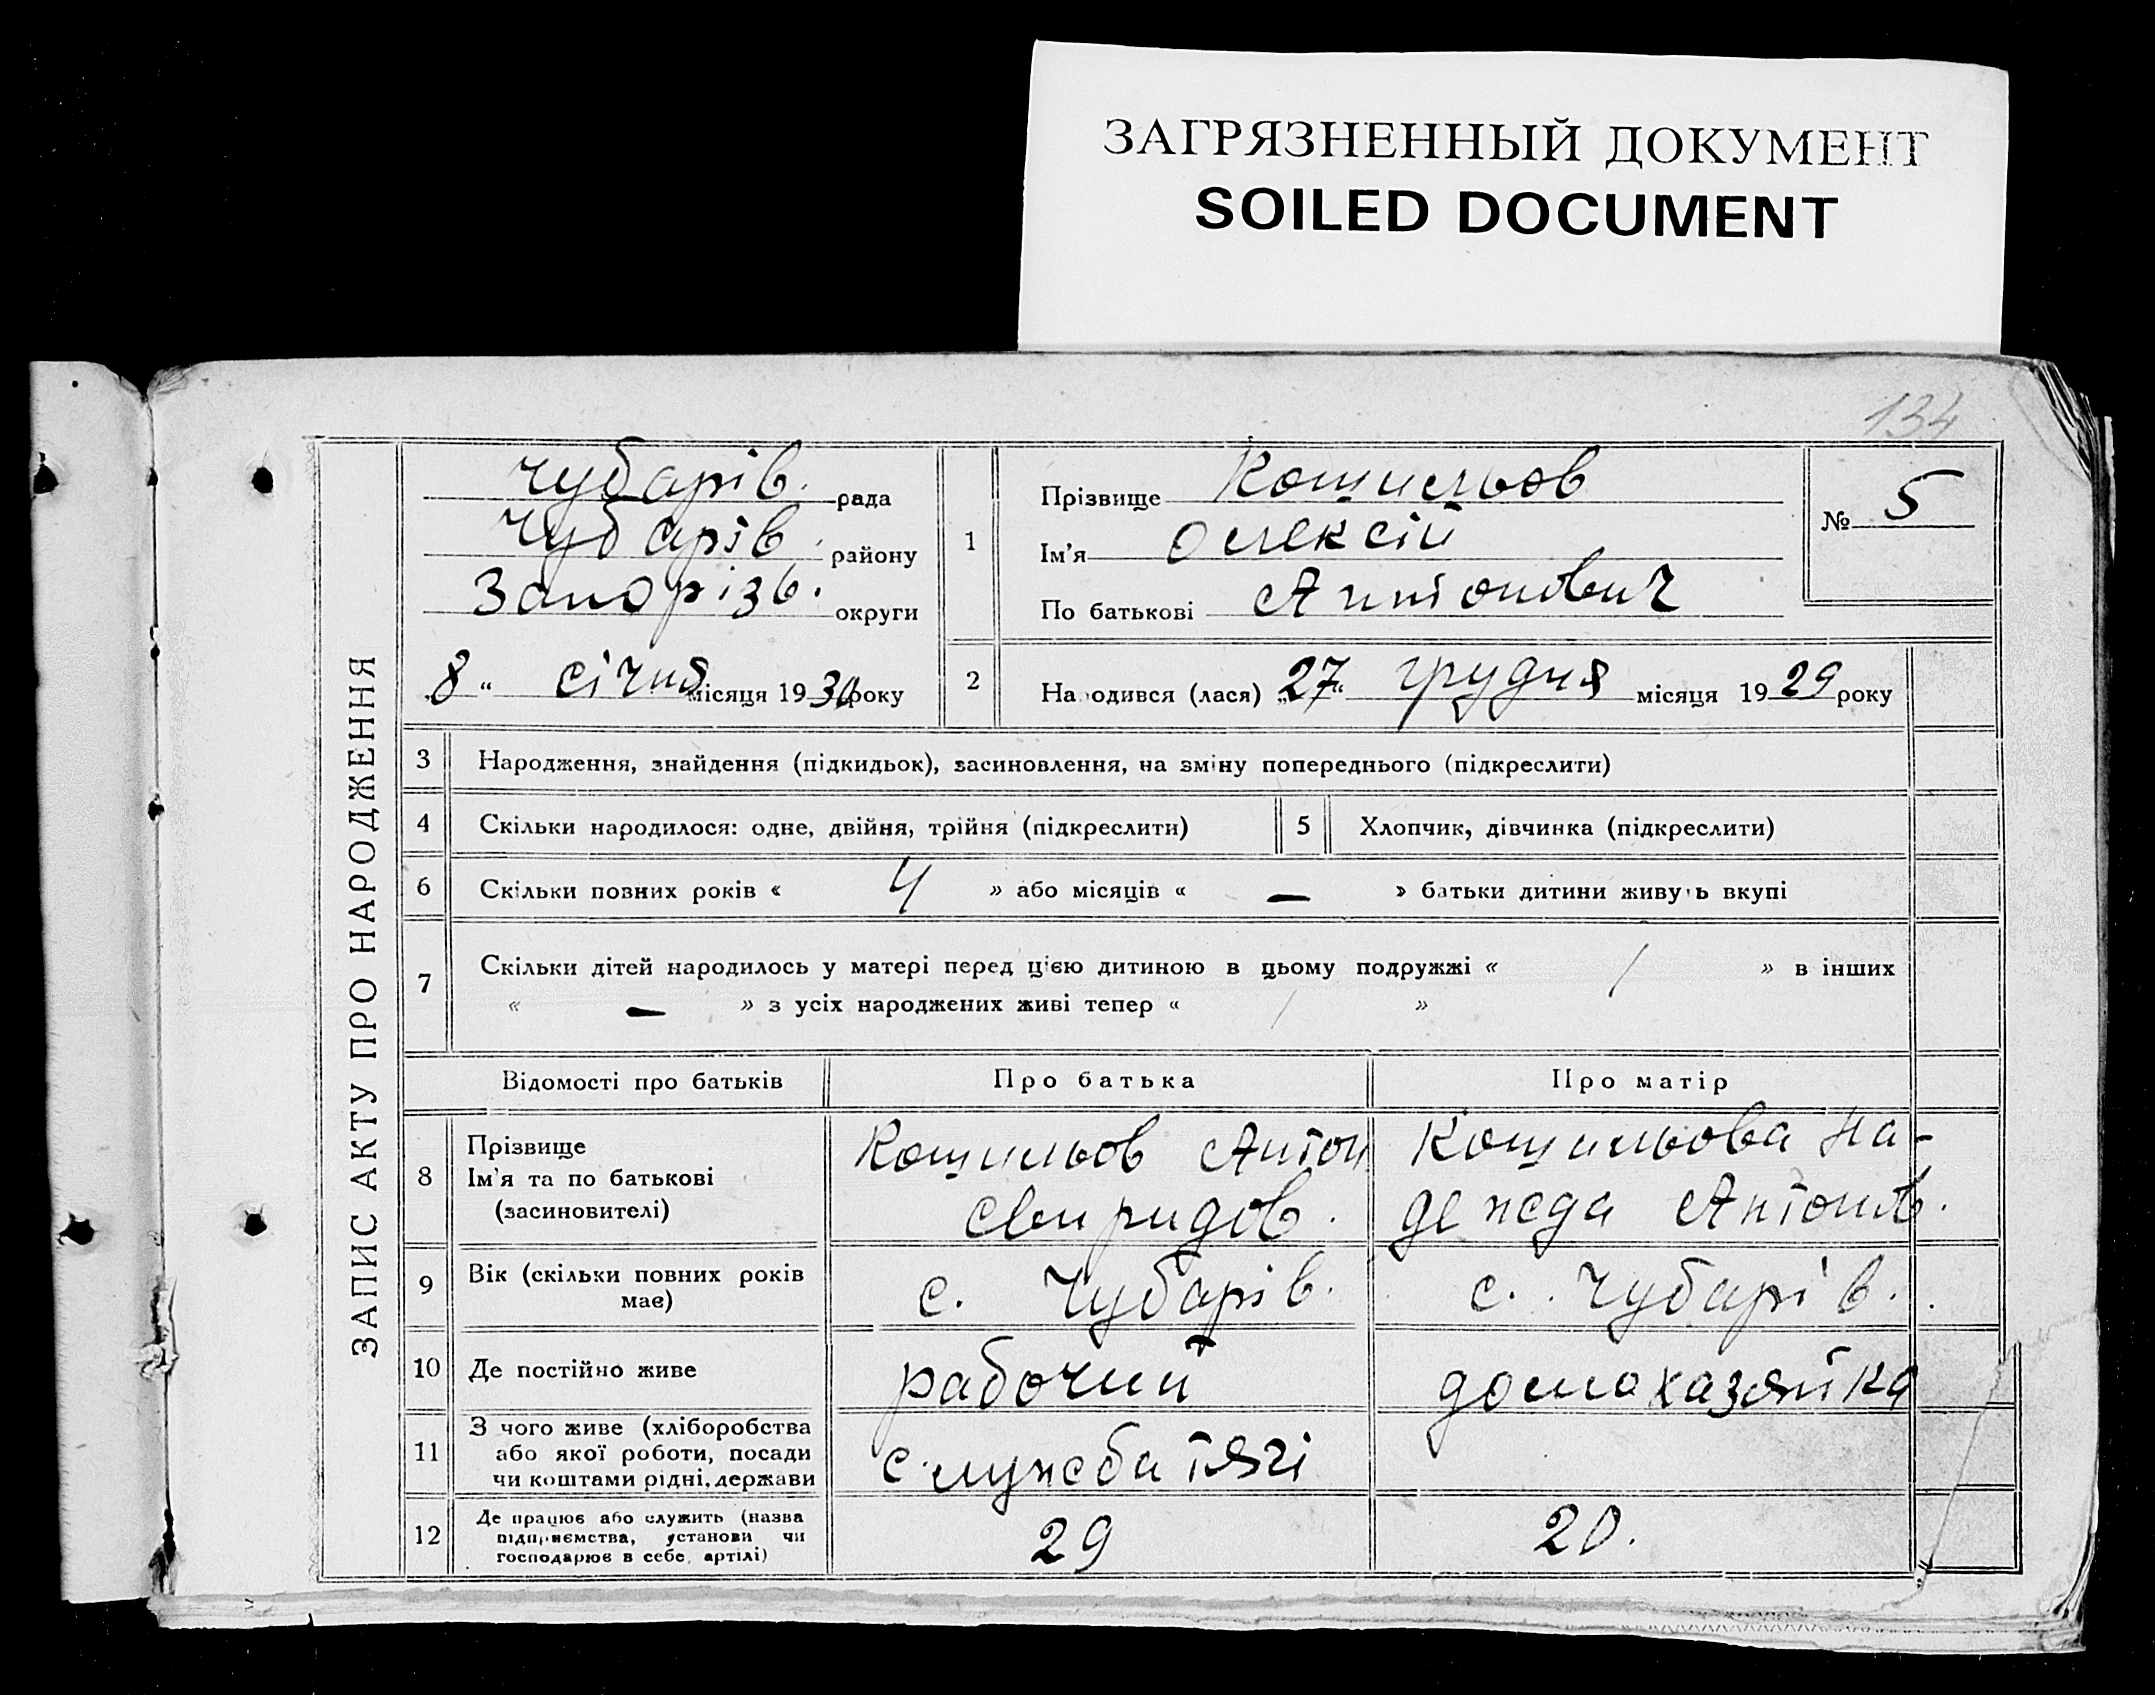 ЗАГРЯЗНЕННЫЙ ДОКУМЕНТ
SOILED DOCUMENT
134
ЗАПИС АКТУ ПРО НАРОДЖЕННЯ
Чубарів. рада
Чубарів. району
Запорізь. округи
8 “ січня місяця 1930 року
1 Прізвище Кошильов
Ім’я Олексій
По батькові Антонович
№ 5
2 Народився (лася) „27“ грудня місяця 1929 року
3 Народження, знайдення (підкидьок), засиновлення, на зміну попереднього (підкреслити)
4 Скільки народилося: одне, двійня, трійня (підкреслити) 5 Хлопчик, дівчинка (підкреслити)
6 Скільки повних років « 4 » або місяців « — » батьки дитини живуть вкупі
7 Скільки дітей народилось у матері перед цією дитиною в цьому подружжі « / » в інших
« — » з усіх народжених живі тепер « / »
Відомості про батьків Про батька Про матір
8 Прізвище
Ім’я та по батькові
(засиновителі)
Кошильов Антон
Свиридов.
Кошильова На-
дежда Антонів.
9 Вік (скільки повних років
має)
с. Чубарів. с. Чубарів.
10 Де постійно живе рабочий домохазяйка
11 З чого живе (хліборобства
або якої роботи, посади
чи коштами рідні, держави
служба тягі
12 Де працює або служить (назва
підприємства, установи чи
господарює в себе, артілі)
29 20.